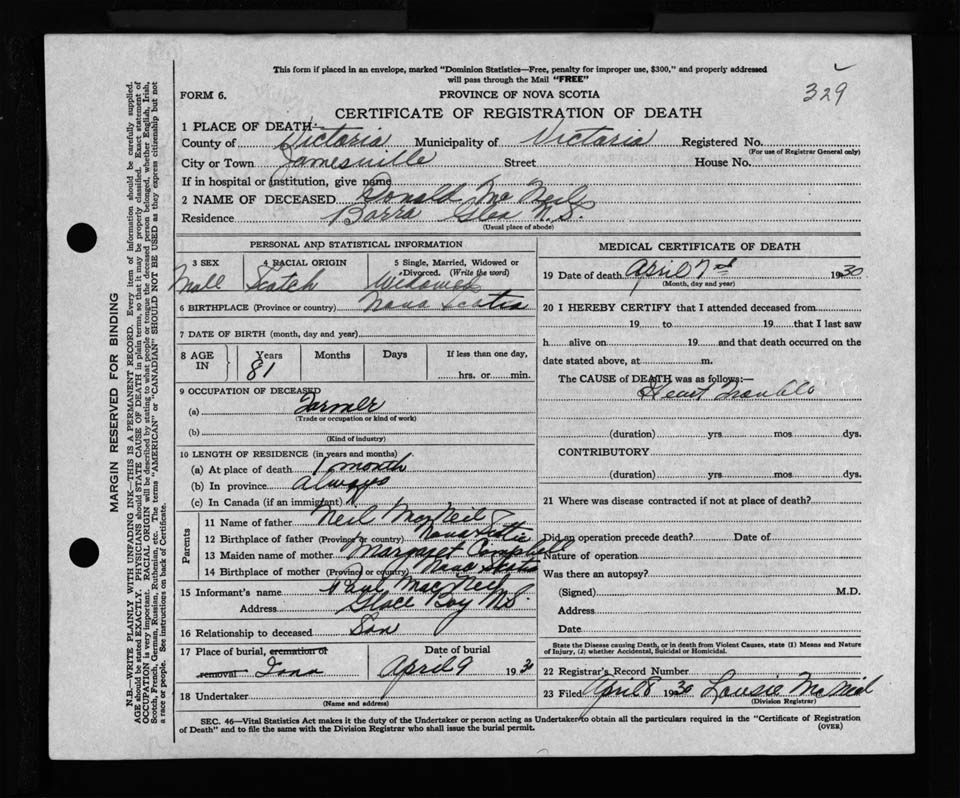 This form if placed in an envelope, marked "Dominion Statistics—Free, penalty for improper use, $300," and properly addressed
will pass through the Mail "FREE"
329
FORM 6.
PROVINCE OF NOVA SCOTIA
CERTIFICATE OF REGISTRATION OF DEATH
1 PLACE OF DEATH—
County of Victoria Municipality of Victoria Registered No.
(For use of Registrar General only)
City or Town Jamesville Street House No.
If in hospital or institution, give name
2 NAME OF DECEASED Donald McNeil
Residence Barra Glen N.S.
(Usual place of abode)
PERSONAL AND STATISTICAL INFORMATION
3 SEX 4 RACIAL ORIGIN 5 Single, Married, Widowed or Divorced. (Write the word)
Mall Scotch Widowed
6 BIRTHPLACE (Province or country) Nova Scotia
7 DATE OF BIRTH (month, day and year)
8 AGE IN Years Months Days If less than one day,
81 hrs. or min.
9 OCCUPATION OF DECEASED
(a) Farmer
(Trade or occupation or kind of work)
(b)
(Kind of industry)
10 LENGTH OF RESIDENCE (in years and months)
(a) At place of death 1 month
(b) In province Always
(c) In Canada (if an immigrant)
Parents
11 Name of father Neil MacNeil
12 Birthplace of father (Province or country) Nova Scotia
13 Maiden name of mother Margaret Campbell
14 Birthplace of mother (Province or country) Nova Scotia
15 Informant's name Paul MacNeil
Address Glace Bay N.S.
16 Relationship to deceased Son
17 Place of burial, cremation or removal Iona
Date of burial April 9 1930
18 Undertaker
(Name and address)
MEDICAL CERTIFICATE OF DEATH
19 Date of death April 7 1930
(Month, day and year)
20 I HEREBY CERTIFY that I attended deceased from
19 to 19 that I last saw
h alive on 19 and that death occurred on the
date stated above, at m.
The CAUSE of DEATH was as follows:—
Heart Trouble
(duration) yrs. mos. dys.
CONTRIBUTORY
(duration) yrs. mos. dys.
21 Where was disease contracted if not at place of death?
Did an operation precede death? Date of
Nature of operation
Was there an autopsy?
(Signed) M.D.
Address
Date
State the Disease causing Death, or in death from Violent Causes, state (1) Means and Nature
of Injury, (2) whether Accidental, Suicidal or Homicidal.
22 Registrar's Record Number
23 Filed April 8 1930 Lousie McNeil
(Division Registrar)
SEC. 46—Vital Statistics Act makes it the duty of the Undertaker or person acting as Undertaker to obtain all the particulars required in the "Certificate of Registration
of Death" and to file the same with the Division Registrar who shall issue the burial permit.
(OVER)
MARGIN RESERVED FOR BINDING
N.B.—WRITE PLAINLY WITH UNFADING INK—THIS IS A PERMANENT RECORD. Every item of information should be carefully supplied.
AGE should be stated EXACTLY. PHYSICIANS should STATE CAUSE OF DEATH in plain terms, so that it may be properly classified. Exact statement of
OCCUPATION is very important. RACIAL ORIGIN will be described by stating to what people or tongue the deceased person belonged, whether English, Irish,
Scotch, French, German, Russian, Ruthenian, etc. The terms "AMERICAN" or "CANADIAN" SHOULD NOT BE USED as they express citizenship but not
a race or people. See instructions on back of Certificate.